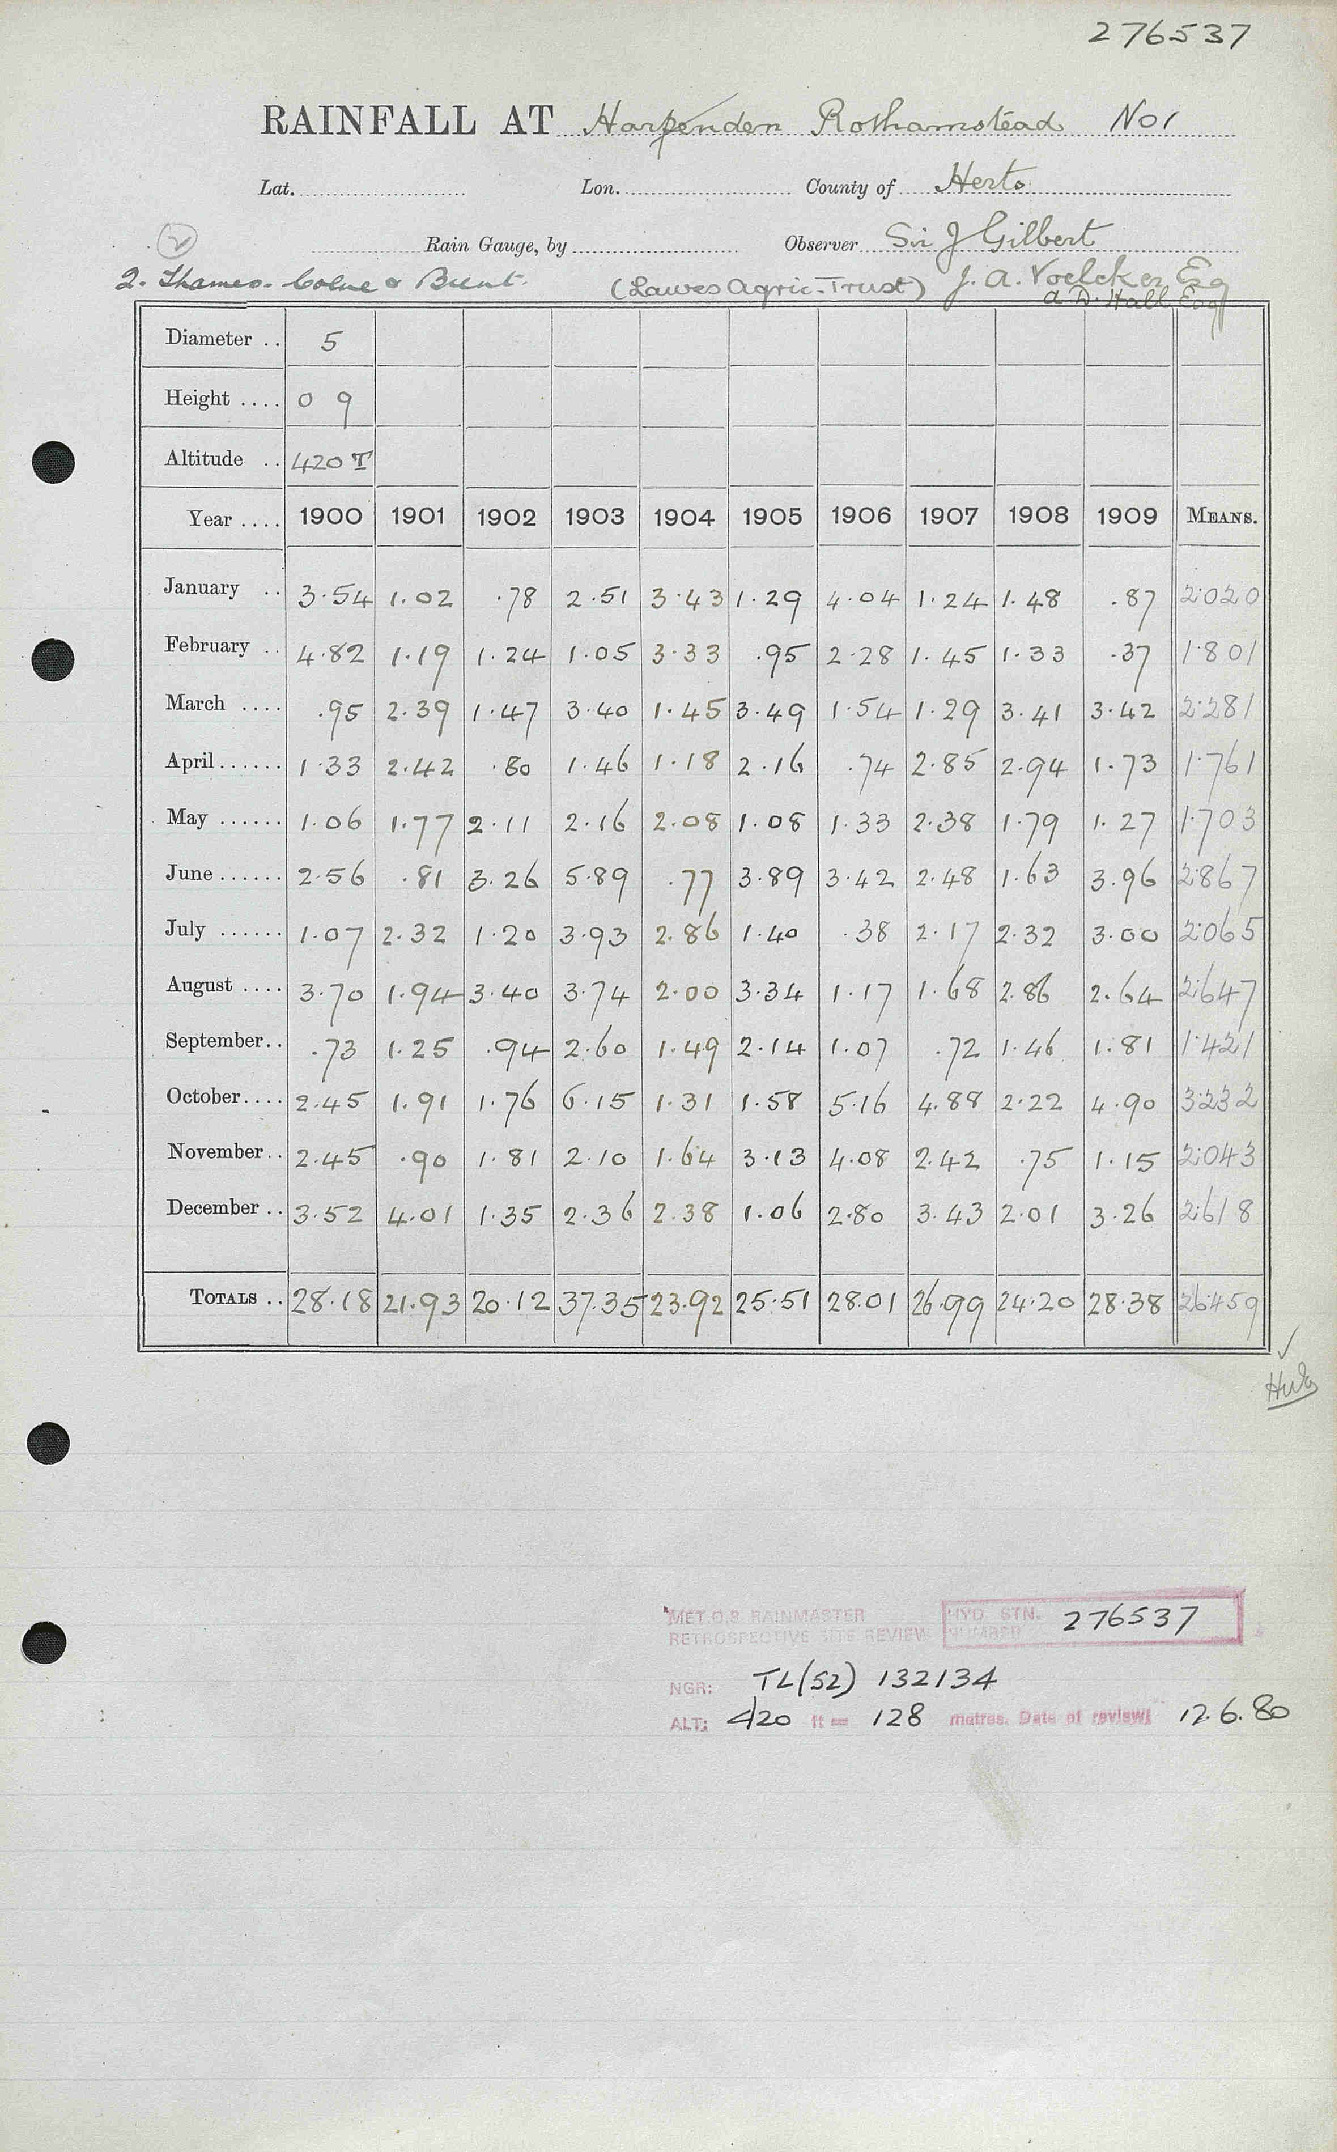 276537
RAINFALL AT Harpenden Rothamstead No 1
Lat. Lon. County of Herts
(2) Rain Gauge, by Observer Sir J Gilbert
2. Thames. Colne & Brent. (Lawes Agric. Trust) J. A. Voelcker Esq
A D. Hall Esq
Diameter .. 5
Height .... 0 9
Altitude .. 420 T
Year .... 1900 1901 1902 1903 1904 1905 1906 1907 1908 1909 MEANS.
January .. 3.54 1.02 .78 2.51 3.43 1.29 4.04 1.24 1.48 .87 2.020
February .. 4.82 1.19 1.24 1.05 3.33 .95 2.28 1.45 1.33 .37 1.801
March .... .95 2.39 1.47 3.40 1.45 3.49 1.54 1.29 3.41 3.42 2.281
April ...... 1.33 2.42 .80 1.46 1.18 2.16 .74 2.85 2.94 1.73 1.761
May ...... 1.06 1.77 2.11 2.16 2.08 1.08 1.33 2.38 1.79 1.27 1.703
June ...... 2.56 .81 3.26 5.89 .77 3.89 3.42 2.48 1.63 3.96 2.867
July ...... 1.07 2.32 1.20 3.93 2.86 1.40 .38 2.17 2.32 3.00 2.065
August .... 3.70 1.94 3.40 3.74 2.00 3.34 1.17 1.68 2.86 2.64 2.647
September.. .73 1.25 .94 2.60 1.49 2.14 1.07 .72 1.46 1.81 1.421
October.... 2.45 1.91 1.76 6.15 1.31 1.58 5.16 4.88 2.22 4.90 3.232
November.. 2.45 .90 1.81 2.10 1.64 3.13 4.08 2.42 .75 1.15 2.043
December .. 3.52 4.01 1.35 2.36 2.38 1.06 2.80 3.43 2.01 3.26 2.618
TOTALS .. 28.18 21.93 20.12 37.35 23.92 25.51 28.01 26.99 24.20 28.38 26.459
MET.O.8 RAINMASTER HYD. STN. 276537
RETROSPECTIVE SITE REVIEW NUMBER
NGR: TL(52) 132134
ALT: 420 ft = 128 metres. Date of review: 12.6.80